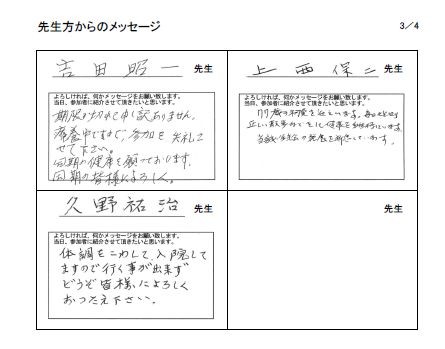 先生方からのメッセージ
3／4
吉田昭一 先生
よろしければ、何かメッセージをお願い致します。
当日、参加者に紹介させて頂きたいと思います。
期限が切れて申し訳ありません。
療養中ですので、参加を失礼さ
せて下さい。
同期の健康を願っております。
同期の皆様によろしく。
上西保二 先生
よろしければ、何かメッセージをお願い致します。
当日、参加者に紹介させて頂きたいと思います。
久野祐治 先生
よろしければ、何かメッセージをお願い致します。
当日、参加者に紹介させて頂きたいと思います。
体調をこわして、入院して
ますので行く事が出来ず
どうぞ皆様によろしく
おつたえ下さい。
先生